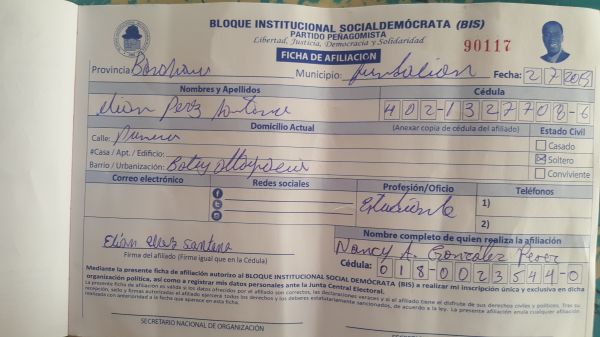 BLOQUE INSTITUCIONAL SOCIALDEMÓCRATA (BIS)
PARTIDO PEÑAGOMISTA
Libertad, Justicia, Democracia y Solidaridad
90117
FICHA DE AFILIACIÓN
Provincia Municipio: Fecha: 2 7 2019
Nombres y Apellidos Cédula
Elian Perez Santana 402-1327708-6
Domicilio Actual (Anexar copia de cédula del afiliado) Estado Civil
Calle: Primera Casado
#Casa / Apt. / Edificio: Soltero
Barrio / Urbanización: Batey Conviviente
Correo electrónico Redes sociales Profesión/Oficio Teléfonos
Estudiante 1)
2)
Elián Santana Nombre completo de quien realiza la afiliación
Firma del afiliado (Firme igual que en la Cédula) Nancy A. González Perez
Cédula: 018-0023544-0
Mediante la presente ficha de afiliación autorizo al BLOQUE INSTITUCIONAL SOCIAL DEMÓCRATA (BIS) a realizar mi inscripción única y exclusiva en dicha
organización política, así como a registrar mis datos personales ante la Junta Central Electoral.
La presente ficha de afiliación es válida si los datos ofrecidos por el afiliado son correctos, las declaraciones veraces y si el afiliado tiene el disfrute de sus derechos civiles y políticos. Tras su
recepción, sello y firmas autorizadas el afiliado ejercerá todos los derechos y los deberes estatutariamente sancionados, de acuerdo a la ley. La presente afiliación anula cualquier afiliación
realizada con anterioridad a la fecha que aparece en esta ficha.
SECRETARIO NACIONAL DE ORGANIZACIÓN